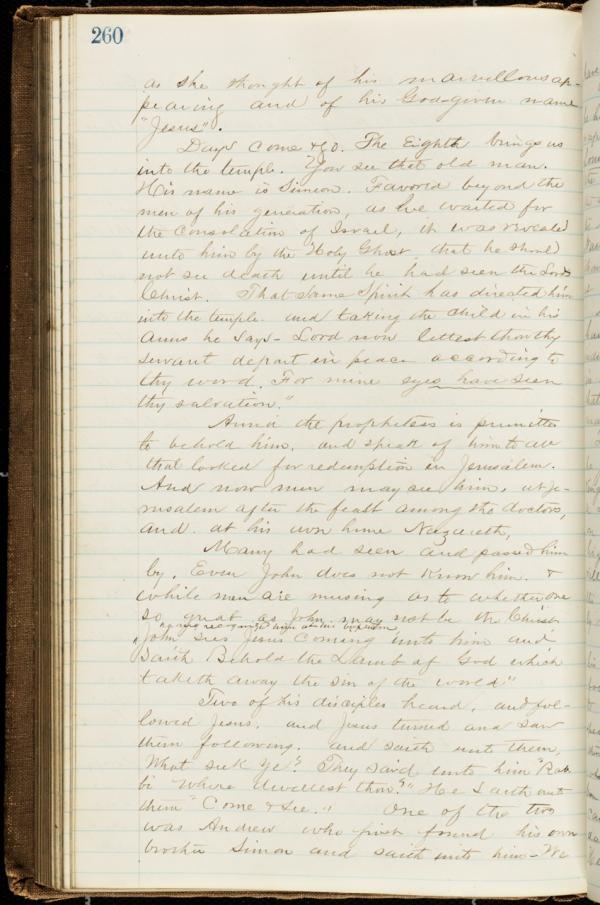 260
as she thought of his marvellous ap-
pearing and of his God-given name
"Jesus".
Days come & go. The Eighth brings us
into the temple. You see that old man.
His name is Simeon. Favored beyond the
men of his generation, as he waited for
the Consolation of Israel, it was revealed
unto him by the Holy Ghost that he should
not see death until he had seen the Lords
Christ. That same Spirit has directed him
into the temple and taking the child in his
arms he says - Lord now lettest thou thy
servant depart in peace according to
thy word. For mine eyes have seen
thy salvation."
Anna the prophetess is permitted
to behold him. and speak of him to all
that looked for redemption in Jerusalem.
And now men may see him, at Je-
rusalem after the feast among the doctors,
and at his own home Nazareth,
Many had seen and passed him
by. Even John does not know him. &
while men are musing as to whether one
so great as John may not be the Christ
him at his baptism
John sees Jesus coming unto him and
saith Behold the Lamb of God which
taketh away the sin of the world"
Two of his disciples heard, and fol-
lowed Jesus. and Jesus turned and saw
them following. and saith unto them,
What seek ye? They said unto him "Rab-
bi "Where dwellest thou?" He saith unto
them "Come & see." One of the two
was Andrew who first found his own
brother Simon and saith unto him - We